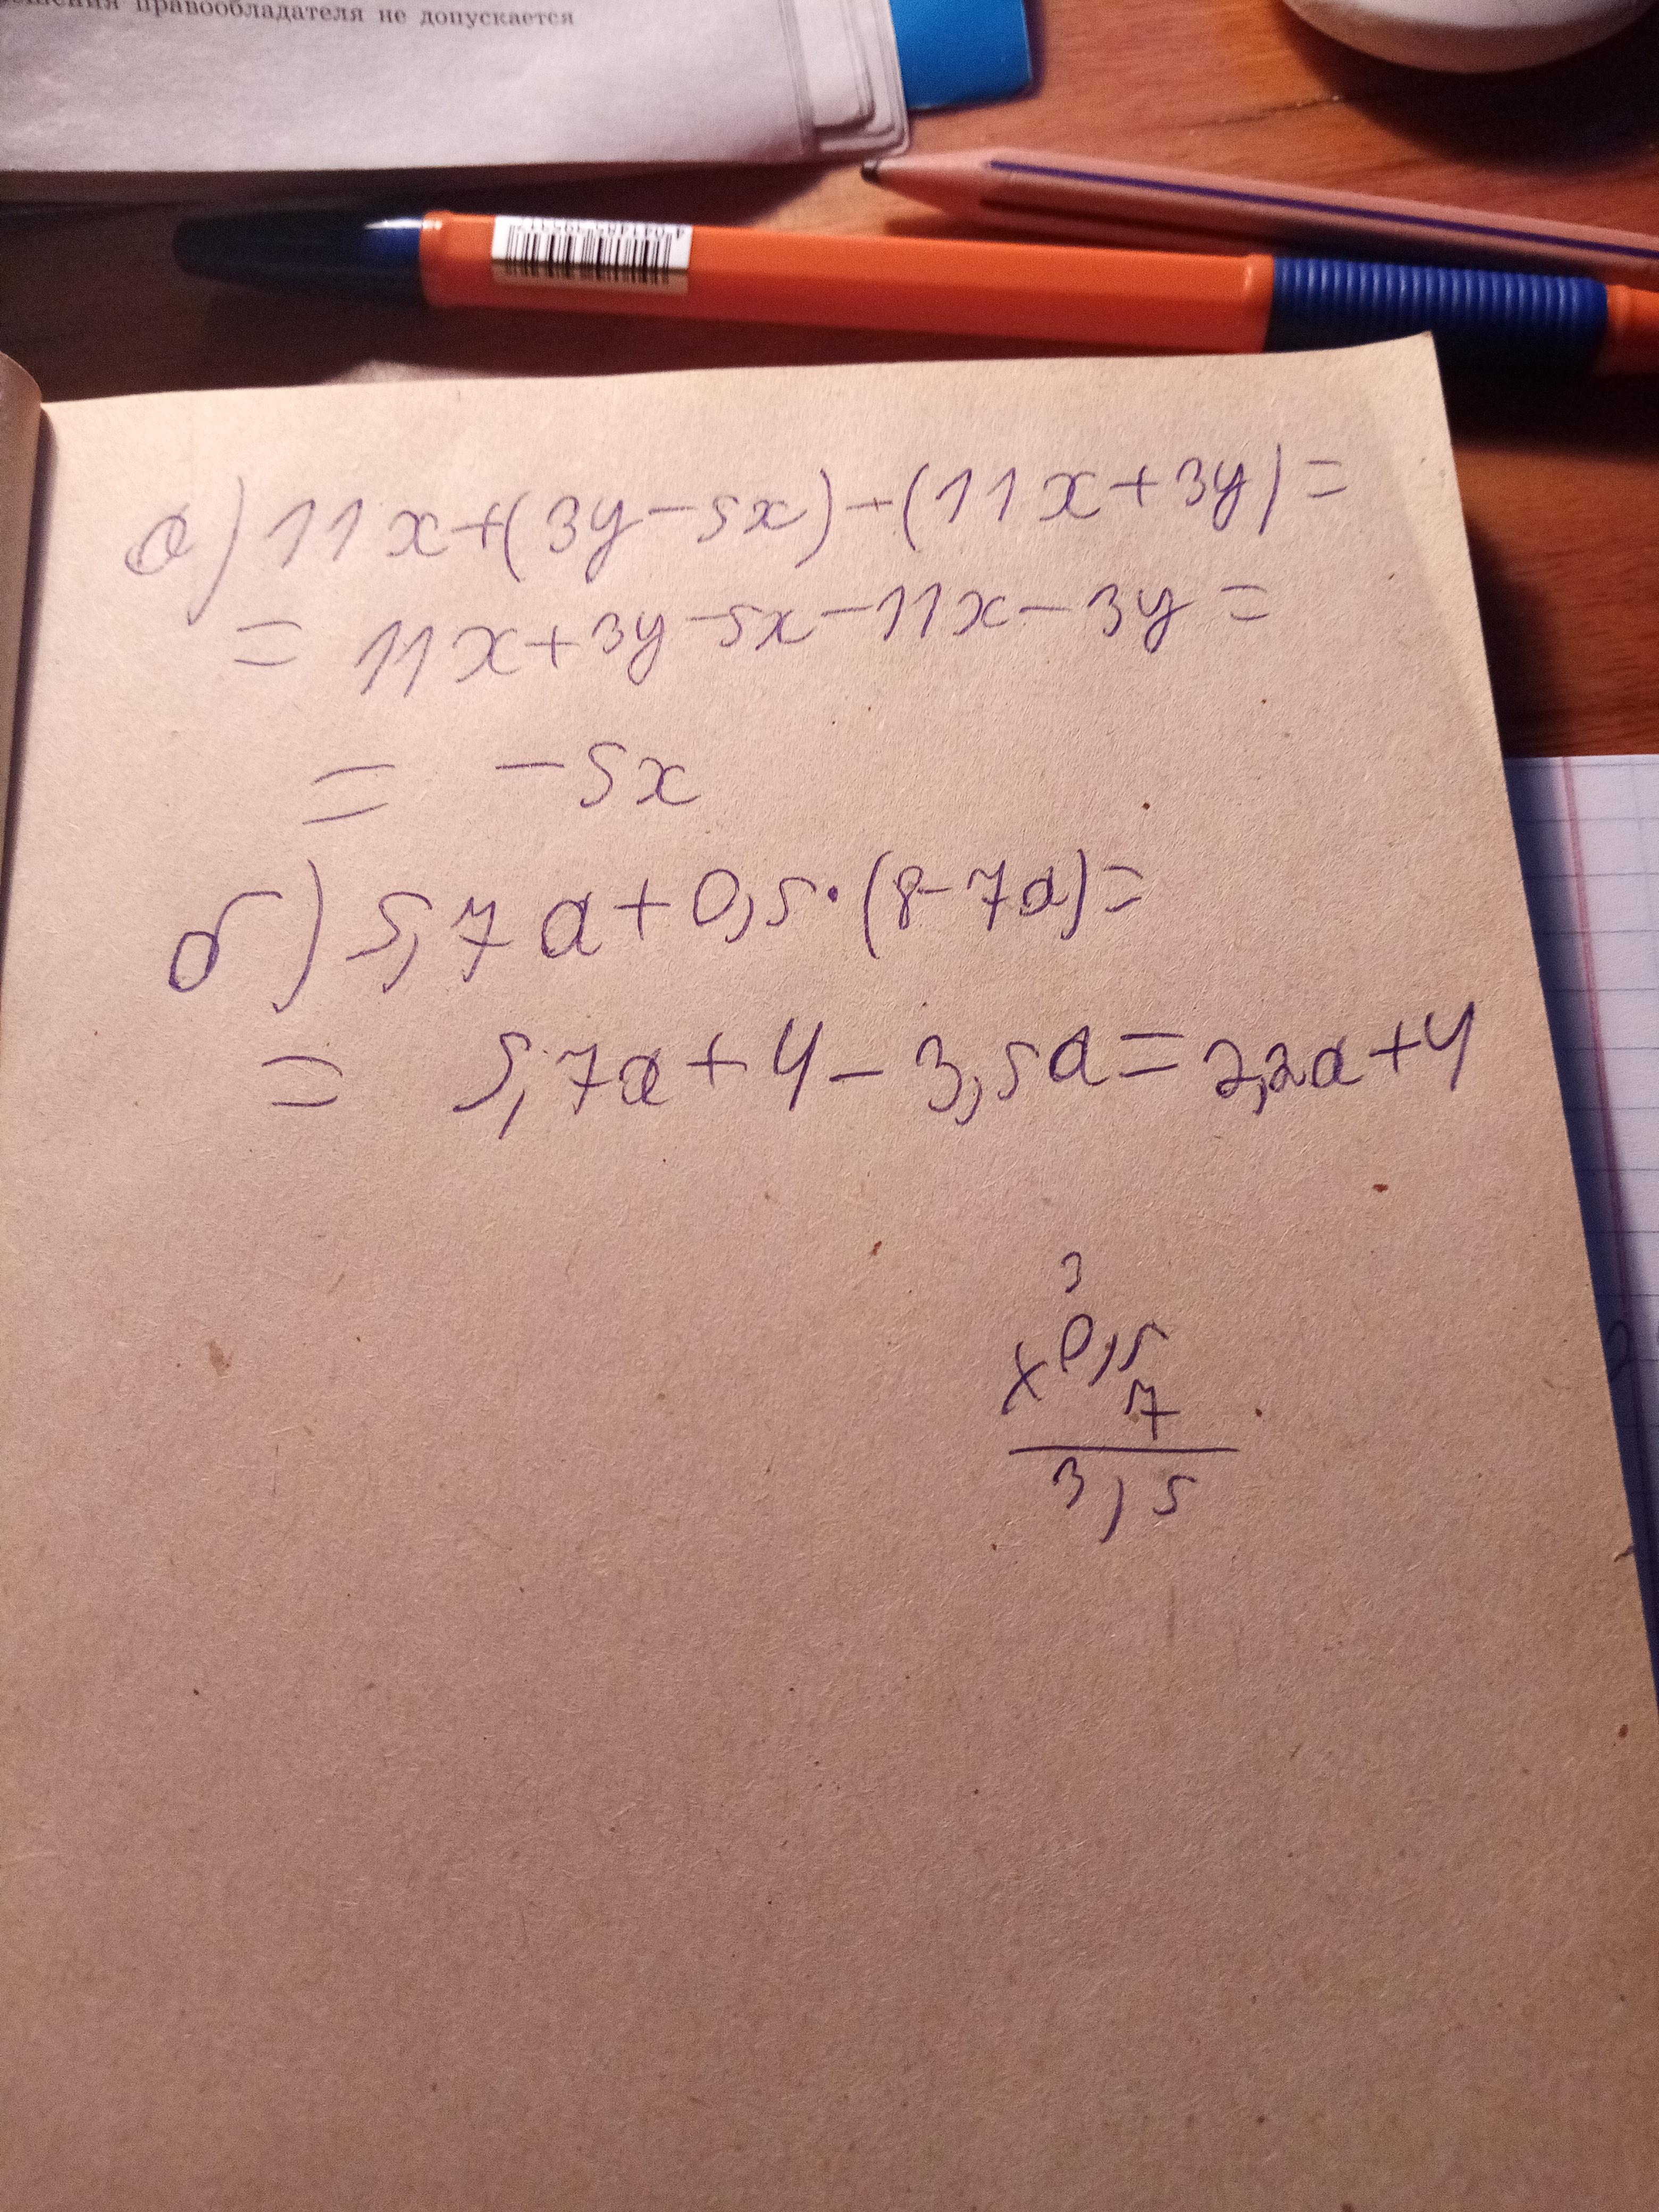 правообладателя не допускается
а) 11x+(3y-5x)-(11x+3y)=
= 11x+3y-5x-11x-3y=
= -5x
б) 5,7a+0,5·(8-7a)=
= 5,7a+4-3,5a=2,2a+4
3
×0,5
7
3,5